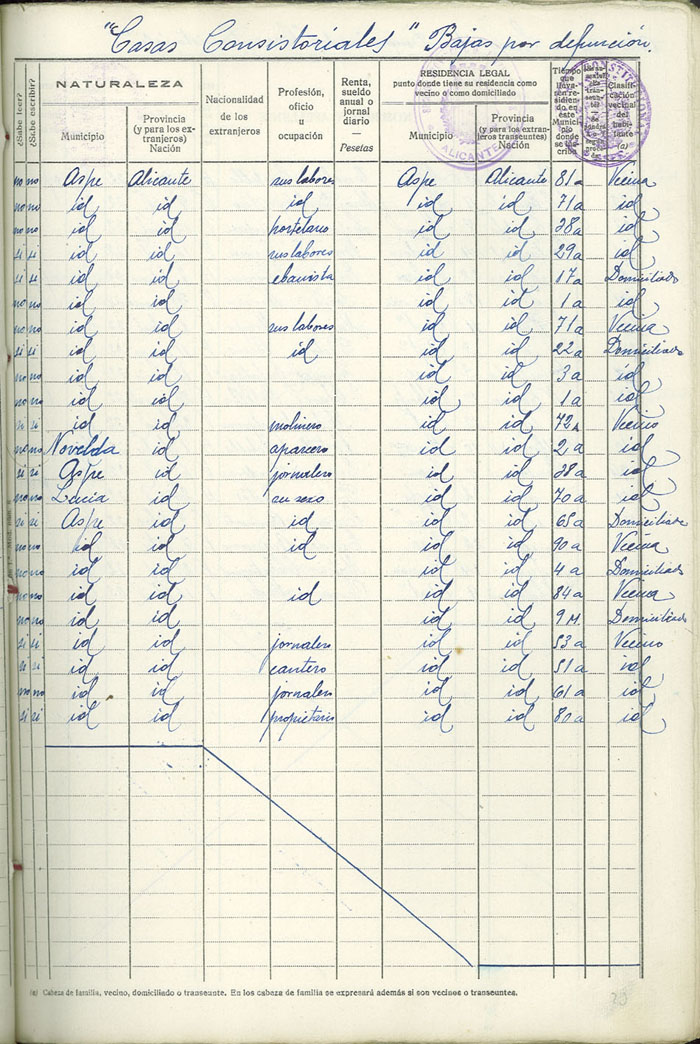 "Casas Consistoriales" Bajas por defunción.
¿Sabe leer? ¿Sabe escribir? NATURALEZA Municipio Provincia (y para los extranjeros) Nación Nacionalidad de los extranjeros Profesión, oficio u ocupación Renta, sueldo anual o jornal diario — Pesetas RESIDENCIA LEGAL punto donde tiene su residencia como vecino o como domiciliado Municipio Provincia (y para los extranjeros transeuntes) Nación Tiempo que lleva de residencia en este Municipio donde se inscribe Clasificación vecinal del habitante (a)
ALICANTE
no no Aspe Alicante sus labores Aspe Alicante 81 a Vecina
no no id id id id id 71 a id
no no id id hortelano id id 38 a id
si si id id sus labores id id 29 a id
si si id id ebanista id id 17 a Domiciliado
no no id id id id 1 a id
no no id id sus labores id id 71 a Vecina
si si id id id id id 22 a Domiciliado
no no id id id id 3 a id
no no id id id id 1 a id
si si id id molinero id id 72 a Vecino
no no Novelda id aparcero id id 2 a id
si si Aspe id jornalero id id 38 a id
no no id su sexo id id 70 a id
si si Aspe id id id id 68 a Domiciliado
no no id id id id id 90 a Vecina
no no id id id id 4 a Domiciliado
no no id id id id id 84 a Vecina
no no id id id id 9 M. Domiciliado
si si id id jornalero id id 53 a Vecino
si si id id cantero id id 51 a id
no no id id jornalero id id 61 a id
si si id id propietario id id 80 a id
(a) Cabeza de familia, vecino, domiciliado o transeunte. En los cabeza de familia se expresará además si son vecinos o transeuntes.